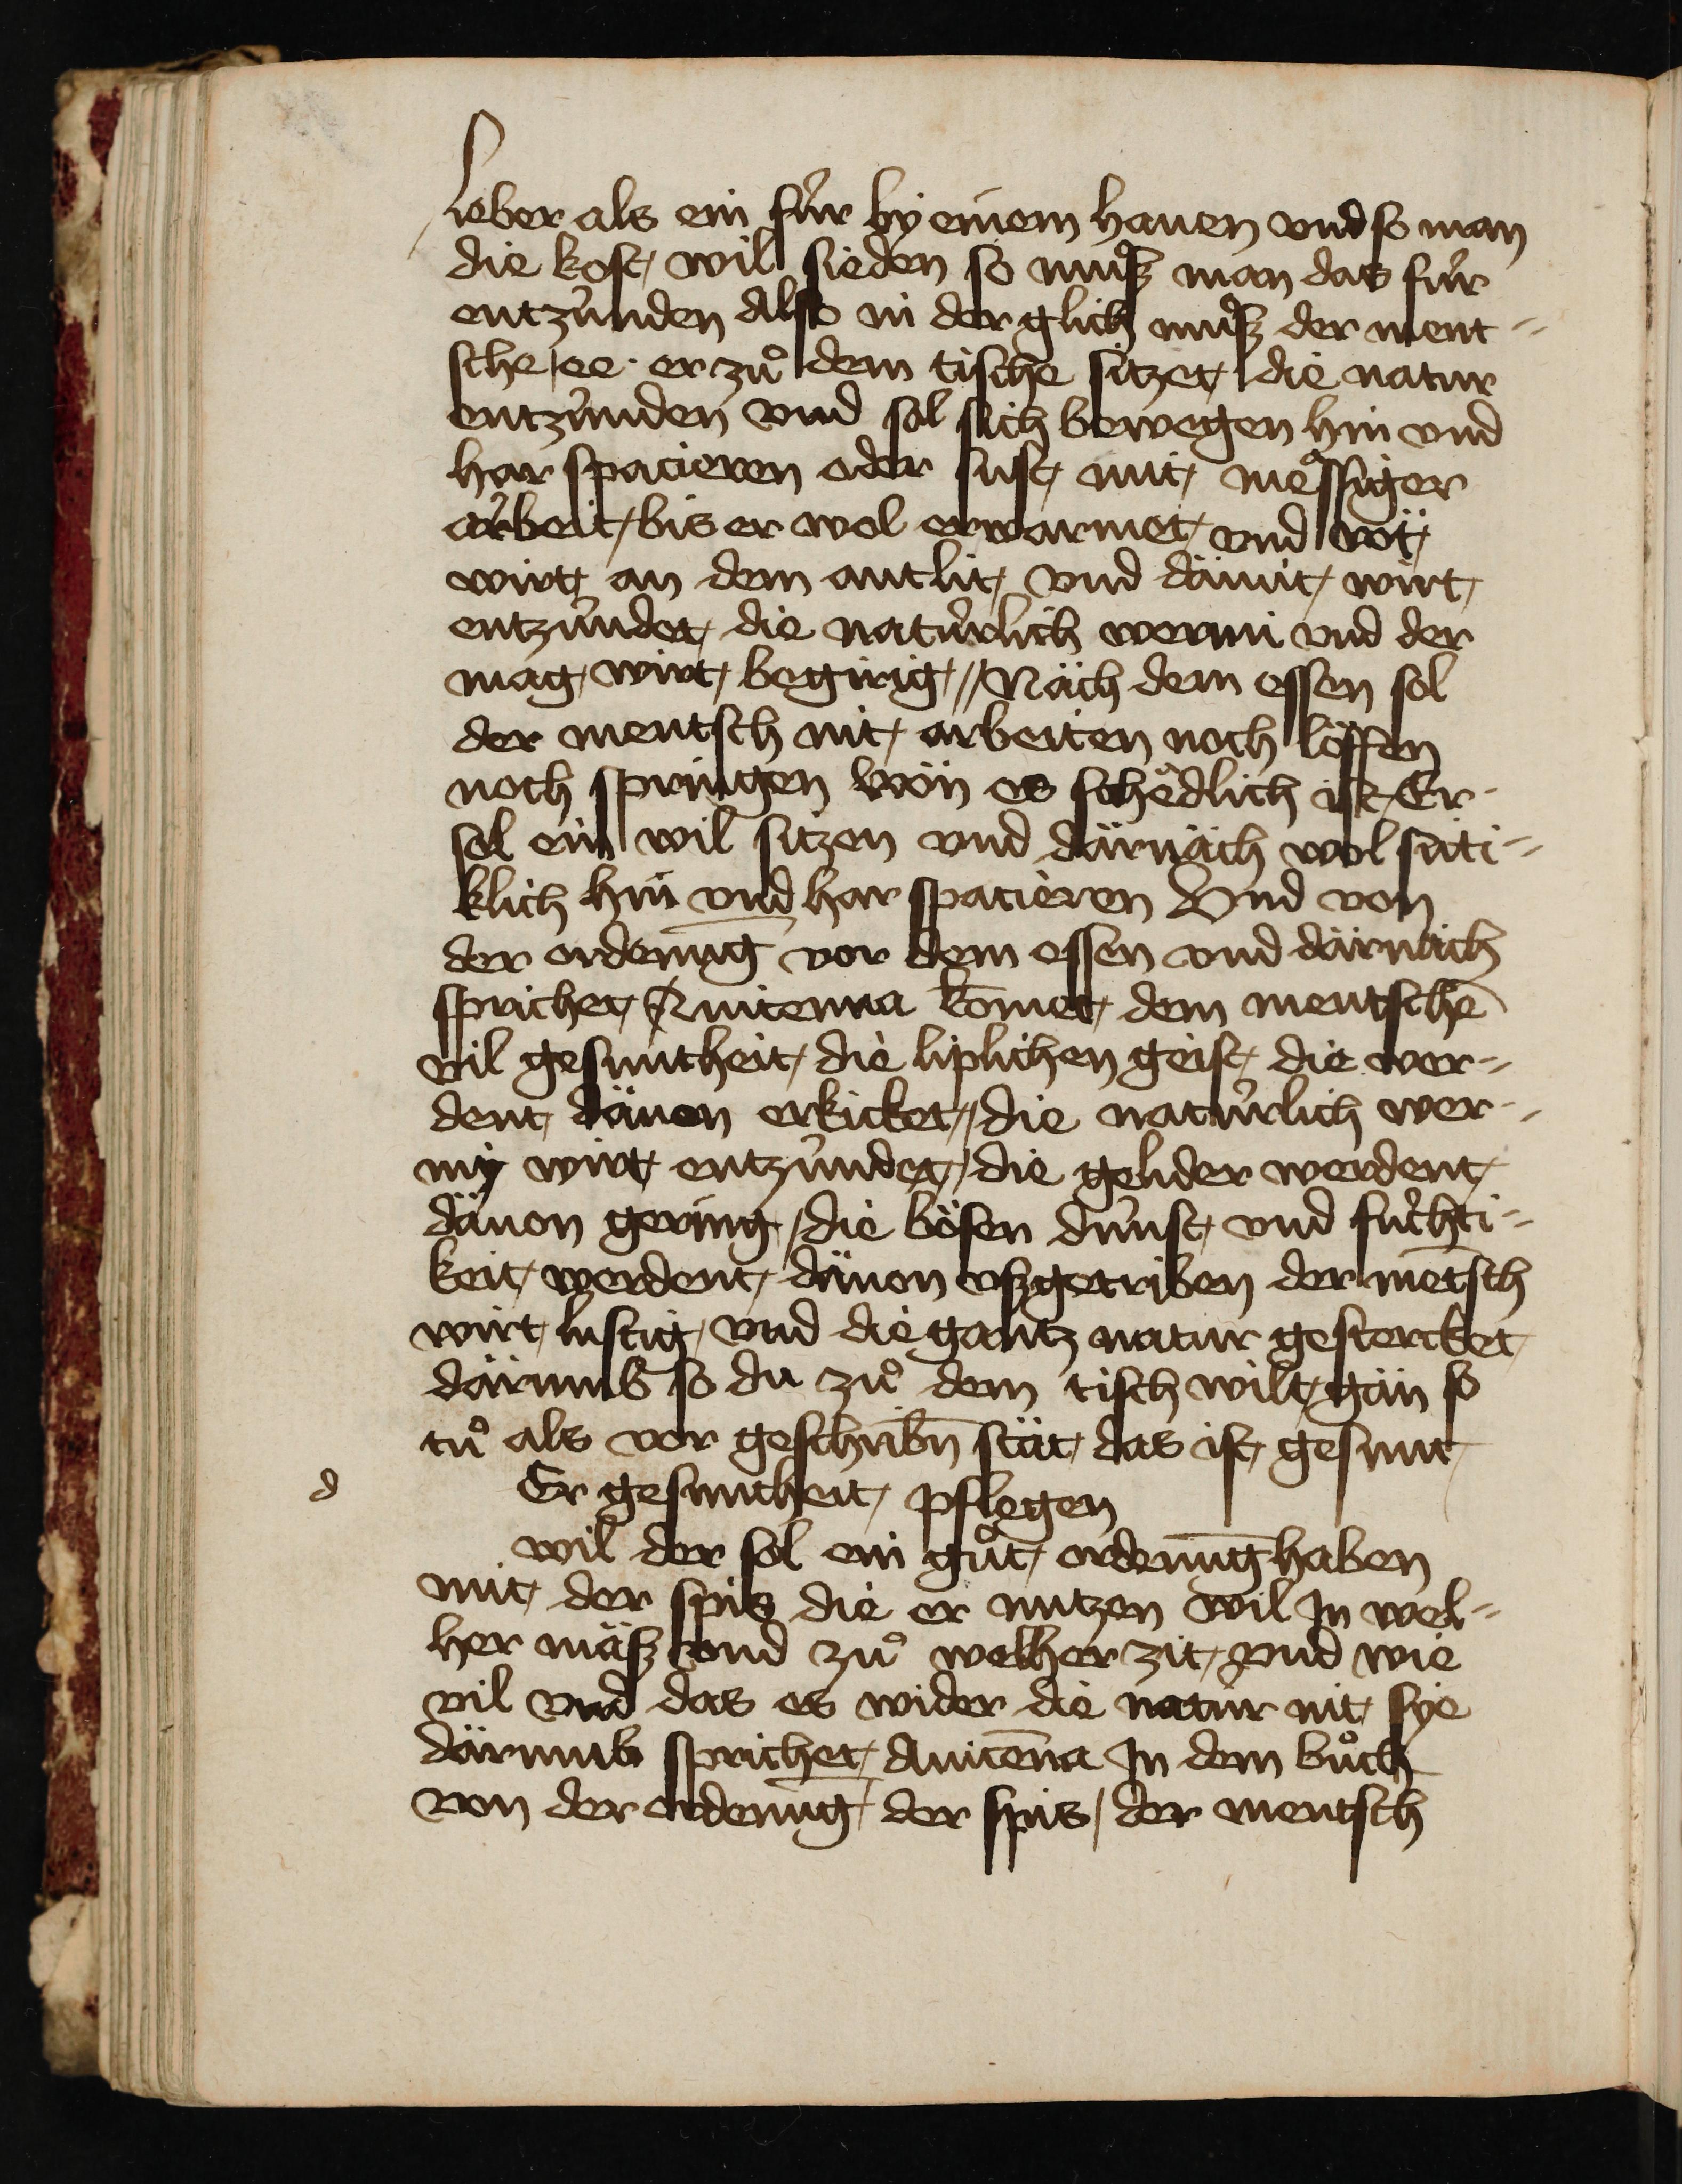 leber als ein für by einem hauen vnd so man
die kost wil sieden so muͦsz man das für
entzünden Also in der glich muͦsz der ment-
sche / ee er zuͦ dem tische sitzet die natur
entzünden vnd sol sich bewegen hin vnd
har spacieren oder sust mit messiger
arbeit / bis er wol erwarmet vnd rot
wirt an dem antlit vnd dämit wirt
entzündet die natürlich wermi vnd der
mag wirt begirig // Näch dem essen sol
der mentsch nit arbeiten noch löffen
noch springen won es schedlich ist Er
sol ein wil sitzen vnd därnäch wol siti-
klich hin vnd har spacieren Vnd von
der ordenūg vor dem essen vnd därnäch
sprichet Auicenna kōmet dem mentschē
vil gesuntheit / die liplichen geist die wer-
dent däuon erkicket / die natürlich wer-
my wirt entzündet / die gelider werdent
däuon gering / die bösen dünst vnd füchti-
keit werdent däuon vszgetriben der mētsch
wirt lustig vnd die gantz natur gestercket
därumb so du zuͦ dem tisch wilt gän so
tuͦ als vor geschribn̄ stät das ist gesunt
d Er gesuntheit pflegen
wil der sol ein guͦt ordenūg haben
mit der spis die er nutzen wil Jn wel-
her mäsz vnd zuͦ welher zit vnd wie
vil vnd das es wider die natur nit sye
därumb sprichet Auicēna Jn dem buͦch
von der ordenūg der spis / der mentsch